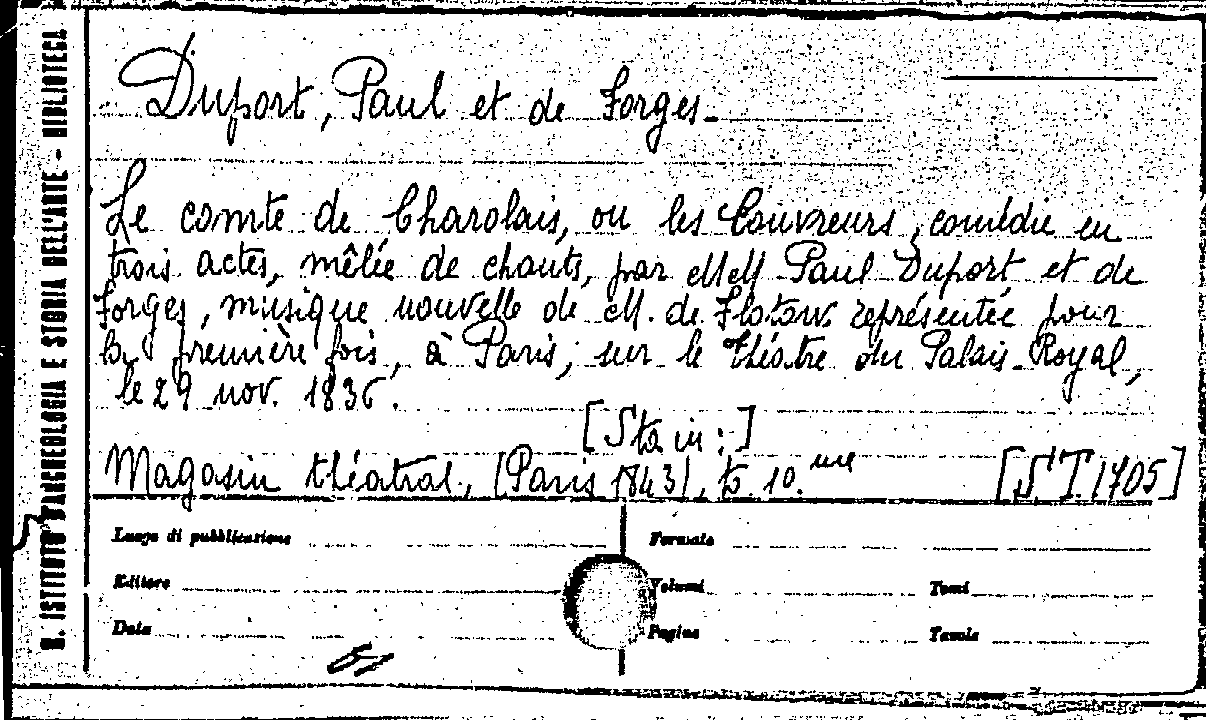 Duport, Paul et de Forges.
Le comte de Charolais, ou les Couvreurs, comédie en
trois actes, mêlée de chants, par MM Paul Duport et de
Forges, musique nouvelle de M. de Flotow représentée pour
la première fois, à Paris, sur le théatre du Palais-Royal,
le 29 nov. 1836.
[Sta in:]
Magasin théatral, (Paris 1843), to 10.me [S.T.1705]
R. ISTITUTO D'ARCHEOLOGIA E STORIA DELL'ARTE - BIBLIOTECA
Luogo di pubblicazione
Formato
Editore
Volumi
Tomi
Data
Pagine
Tavole